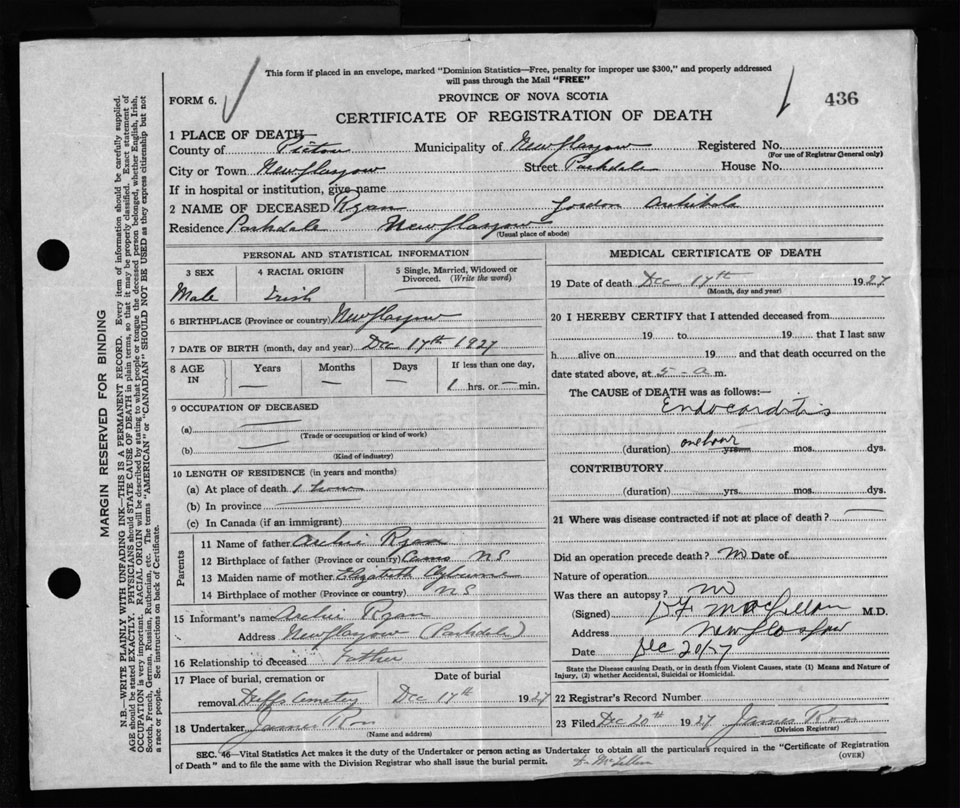 This form if placed in an envelope, marked "Dominion Statistics—Free, penalty for improper use $300," and properly addressed
will pass through the Mail "FREE"
FORM 6. PROVINCE OF NOVA SCOTIA 436
CERTIFICATE OF REGISTRATION OF DEATH
1 PLACE OF DEATH—
County of Pictou Municipality of New Glasgow Registered No.
(For use of Registrar General only)
City or Town New Glasgow Street Parkdale House No.
If in hospital or institution, give name
2 NAME OF DECEASED Ryan Gordon Archibald
Residence Parkdale New Glasgow
(Usual place of abode)
PERSONAL AND STATISTICAL INFORMATION
3 SEX 4 RACIAL ORIGIN 5 Single, Married, Widowed or Divorced. (Write the word)
Male Irish —
6 BIRTHPLACE (Province or country) New Glasgow
7 DATE OF BIRTH (month, day and year) Dec 17th 1927
8 AGE IN Years Months Days If less than one day,
— — — 1 hrs. or — min.
9 OCCUPATION OF DECEASED
(a) —
(Trade or occupation or kind of work)
(b) —
(Kind of industry)
10 LENGTH OF RESIDENCE (in years and months)
(a) At place of death 1 hour
(b) In province —
(c) In Canada (if an immigrant) —
Parents
11 Name of father Archie Ryan
12 Birthplace of father (Province or country) NS
13 Maiden name of mother Elizabeth
14 Birthplace of mother (Province or country) NS
15 Informant's name Archie Ryan
Address New Glasgow (Parkdale)
16 Relationship to deceased Father
17 Place of burial, cremation or removal Date of burial
Duffs Cemetery Dec 17th 1927
18 Undertaker James Ross
(Name and address)
MEDICAL CERTIFICATE OF DEATH
19 Date of death Dec 17th 1927
(Month, day and year)
20 I HEREBY CERTIFY that I attended deceased from
19 to 19 that I last saw
h alive on 19 and that death occurred on the
date stated above, at 5- a m.
The CAUSE of DEATH was as follows:—
Endocarditis
(duration) one hour yrs. mos. dys.
CONTRIBUTORY
(duration) yrs. mos. dys.
21 Where was disease contracted if not at place of death? —
Did an operation precede death? No Date of
Nature of operation
Was there an autopsy? no
(Signed) MacLellan M.D.
Address New Glasgow
Date Dec 20/27
State the Disease causing Death, or in death from Violent Causes, state (1) Means and Nature of
Injury, (2) whether Accidental, Suicidal or Homicidal.
22 Registrar's Record Number
23 Filed Dec 20th 1927 James Ross
(Division Registrar)
SEC. 46—Vital Statistics Act makes it the duty of the Undertaker or person acting as Undertaker to obtain all the particulars required in the "Certificate of Registration
of Death" and to file the same with the Division Registrar who shall issue the burial permit. (OVER)
MARGIN RESERVED FOR BINDING
N.B.—WRITE PLAINLY WITH UNFADING INK—THIS IS A PERMANENT RECORD. Every item of information should be carefully supplied.
AGE should be stated EXACTLY. PHYSICIANS should STATE CAUSE OF DEATH in plain terms, so that it may be properly classified. Exact statement of
OCCUPATION is very important. RACIAL ORIGIN will be described by stating to what people or tongue the deceased person belonged, whether English, Irish,
Scotch, French, German, Russian, Ruthenian, etc. The terms "AMERICAN" or "CANADIAN" SHOULD NOT BE USED as they express citizenship but not
a race or people. See instructions on back of Certificate.